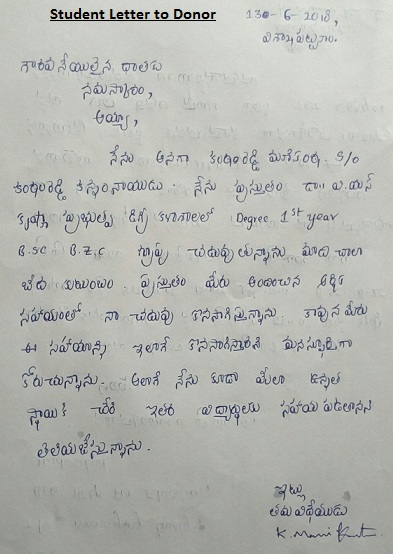 Student Letter to Donor
130-6-2018,
విశాఖపట్టణం.
గౌరవనీయులైన దాతకు
నమస్కారం,
అయ్యా,
నేను అనగా S/o
కన్నంనాయుడు. నేను ప్రస్తుతం డా॥ వి.యస్
కృష్ణా ప్రభుత్వ డిగ్రీ కళాశాలలో Degree 1st year
B.SC B.Z.C గ్రూపు చదువుతున్నాను మాది చాలా
పేద కుటుంబం. ప్రస్తుతం మీరు అందించిన ఆర్థిక
సహాయంతో నా చదువు కొనసాగిస్తున్నాను. కావున మీరు
ఈ సహాయాన్ని ఇలాగే కొనసాగిస్తారని మనస్పూర్తిగా
కోరుచున్నాను. అలాగే నేను కూడా మీలా ఉన్నత
స్థాయికి చేరి ఇతర విద్యార్థులకు సహాయ పడతానని
తెలియజేస్తున్నాను.
ఇట్లు
తమ విధేయుడు
K. Mani